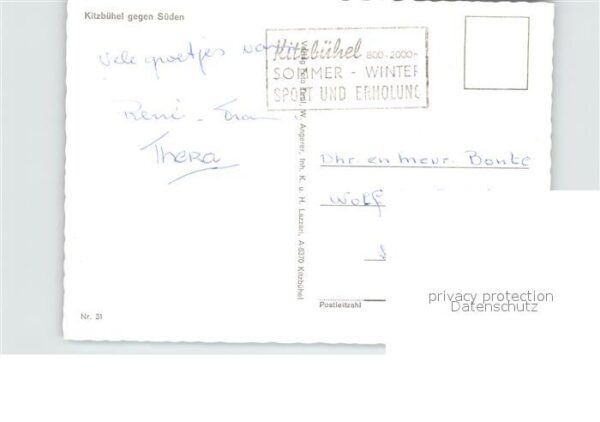 Kitzbühel gegen Süden
Kitzbühel 800-2000m
SOMMER - WINTER
SPORT UND ERHOLUNG
Vele groetjes van
René - Fran
Thera
W. Angerer, Inh. K. u. H. Lazzari, A-6370 Kitzbühel
Dhr. en mevr. Bonte
Wolf
Postleitzahl
Nr. 31
privacy protection
Datenschutz